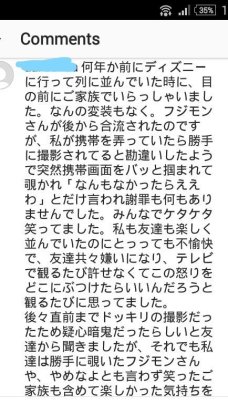 35%
1
Comments
何年か前にディズニー
に行って列に並んでいた時に、目
の前にご家族でいらっしゃいまし
た。なんの変装もなく。フジモン
さんが後から合流されたのです
が、私が携帯を弄っていたら勝手
に撮影されてると勘違いしたよう
で突然携帯画面をバッと掴まれて
覗かれ「なんもなかったらええ
わ」とだけ言われ謝罪も何もあり
ませんでした。みんなでケタケタ
笑ってました。私も友達も楽しく
並んでいたのにとっても不愉快
で、友達共々嫌いになり、テレビ
で観るたび許せなくてこの怒りを
どこにぶつけたらいいんだろうと
観るたびに思ってました。
後々直前までドッキリの撮影だっ
たため疑心暗鬼だったらしいと友
達から聞きましたが、それでも私
達は勝手に覗いたフジモンさん
や、やめなよとも言わず笑ったご
家族も含めて楽しかった気持ちを